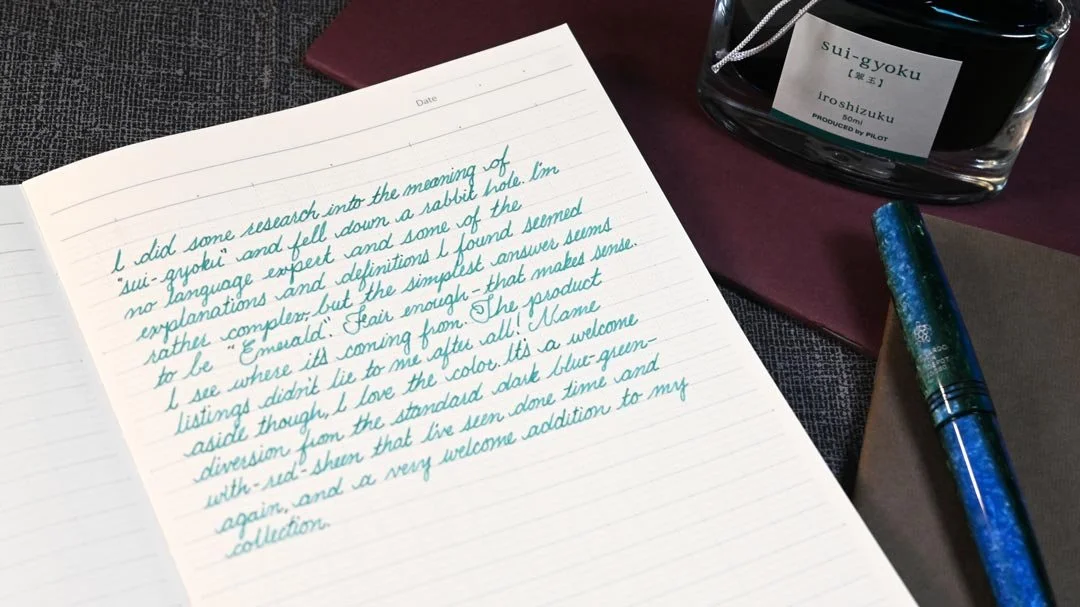 Date
I did some research into the meaning of
"sui-gyoku" and fell down a rabbit hole. I'm
no language expert and some of the
explanations and definitions I found seemed
rather complex, but the simplest answer seems
to be "Emerald". Fair enough - that makes sense.
I see where it's coming from. The product
listings didn't lie to me after all! Name
aside though, I love the color. It's a welcome
diversion from the standard dark blue-green-
with-red-sheen that I've seen done time and
again, and a very welcome addition to my
collection.
sui-gyoku
【翠玉】
iroshizuku
50ml
PRODUCED by PILOT